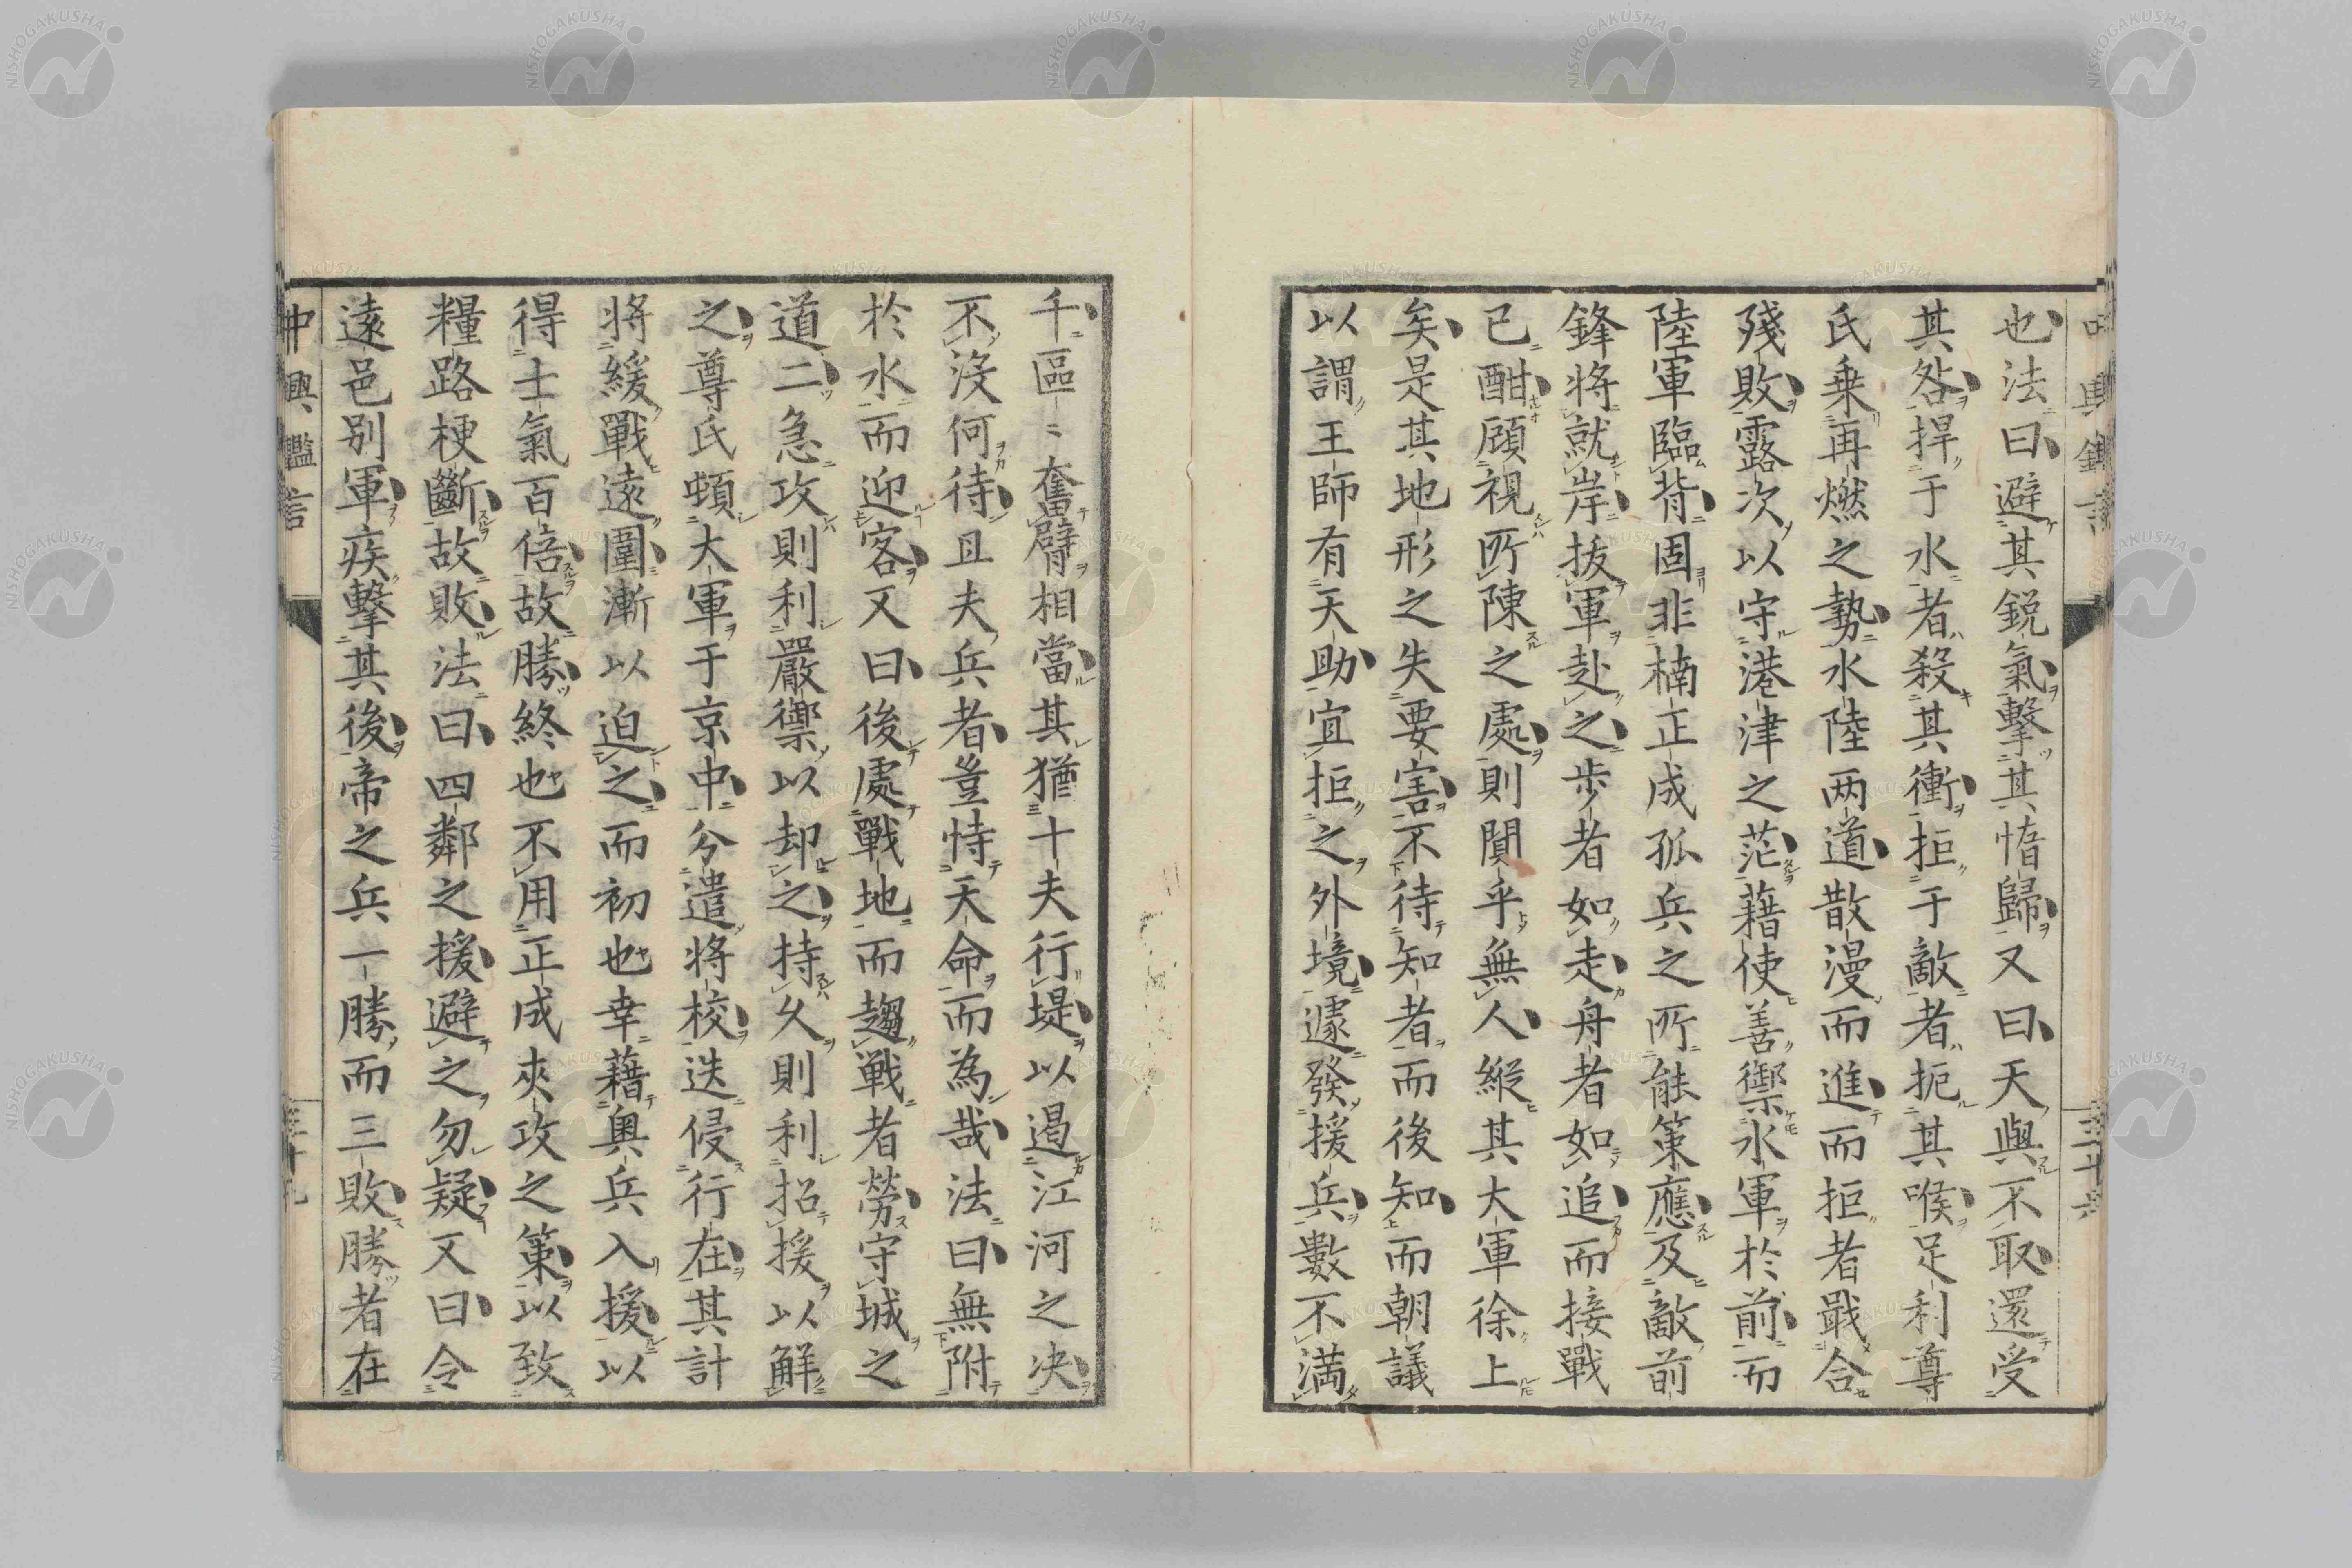 也法曰避其鋭氣擊其惰歸又曰天與不取還受
其咎捍于水者殺其衝拒于敵者扼其喉足利尊
氏乗再燃之勢水陸两道散漫而進而拒者戰合
殘敗露次以守港津之茫藉使善禦水軍於前而
陸軍臨背固非楠正成孤兵之所能策應及敵前
鋒将就岸抜軍赴之歩者如走舟者如追而接戰
已酣顧視所陳之處則闃乎無人縦其大軍徐上
矣是其地形之失要害不待知者而後知而朝議
以謂王師有天助宜拒之外境遽發援兵數不満
千區〻奮臂相當其猶十夫行堤以遏江河之决
不没何待且夫兵者豈恃天命而為哉法曰無附
於水而迎客又曰後處戰地而趨戦者勞守城之
道二急攻則利嚴禦以却之持久則利招援以解
之尊氏頓大軍于京中分遣将校迭侵行在其計
将緩戰遠圍漸以迫之而初也幸藉奥兵入援以
得士氣百倍故勝終也不用正成夾攻之策以致
糧路梗斷故敗法曰四鄰之援避之勿疑又曰令
遠邑别軍疾擊其後帝之兵一勝而三敗勝者在
中興鑑言
NISHOGAKUSHA